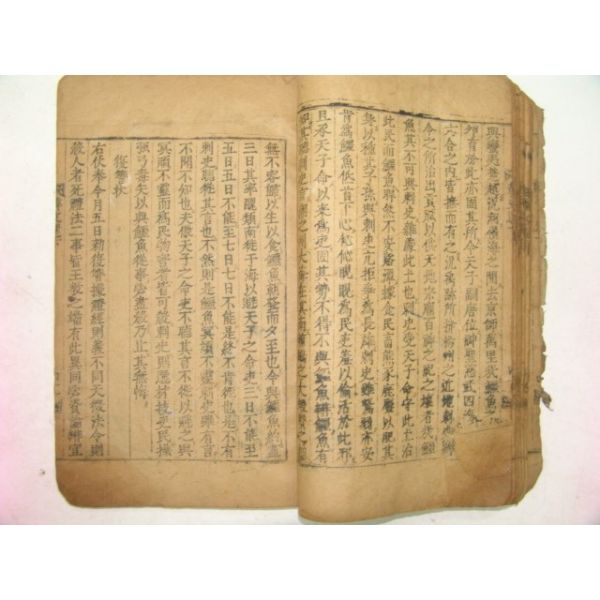 與蠻夷楚越況潮嶺海之間去京師萬里哉鱷魚之
卵育於此亦固其所今天子嗣唐位神聖慈武四海
六合之內皆撫而有之況禹跡所揜揚州之近地刺史縣
令之所治出貢賦以供天地宗廟百神之祀之壤者哉鱷
魚其不可與刺史雜處此土也刺史受天子命守此土治
此民而鱷魚睅然不安谿潭據食民畜熊豕鹿獐以肥其
身以種其子孫與刺史亢拒爭為長雄刺史雖駑弱亦安
肯為鱷魚低首下心伈伈睍睍為民吏羞以偷活於此邪
且承天子命以來為吏固其勢不得不與鱷魚辨鱷魚有
知其聽刺史言潮之州大海在其南鯨鵬之大蝦蟹之細
無不容歸以生以食鱷魚朝發而夕至也今與鱷魚約盡
三日其率醜類南徙于海以避天子之命吏三日不能至
五日五日不能至七日七日不能是終不肯徙也是不有
刺史聽從其言也不然則是鱷魚冥頑不靈刺史雖有言
不聞不知也夫傲天子之命吏不聽其言不徙以避之與
冥頑不靈而為民物害者皆可殺刺史則選材技吏民操
強弓毒矢以與鱷魚從事必盡殺乃止其無悔
復讎狀
右伏奉今月五日勑復讎據禮經則義不同天徵法令則
殺人者死禮法二事皆王教之端有此異同必資論辨宜